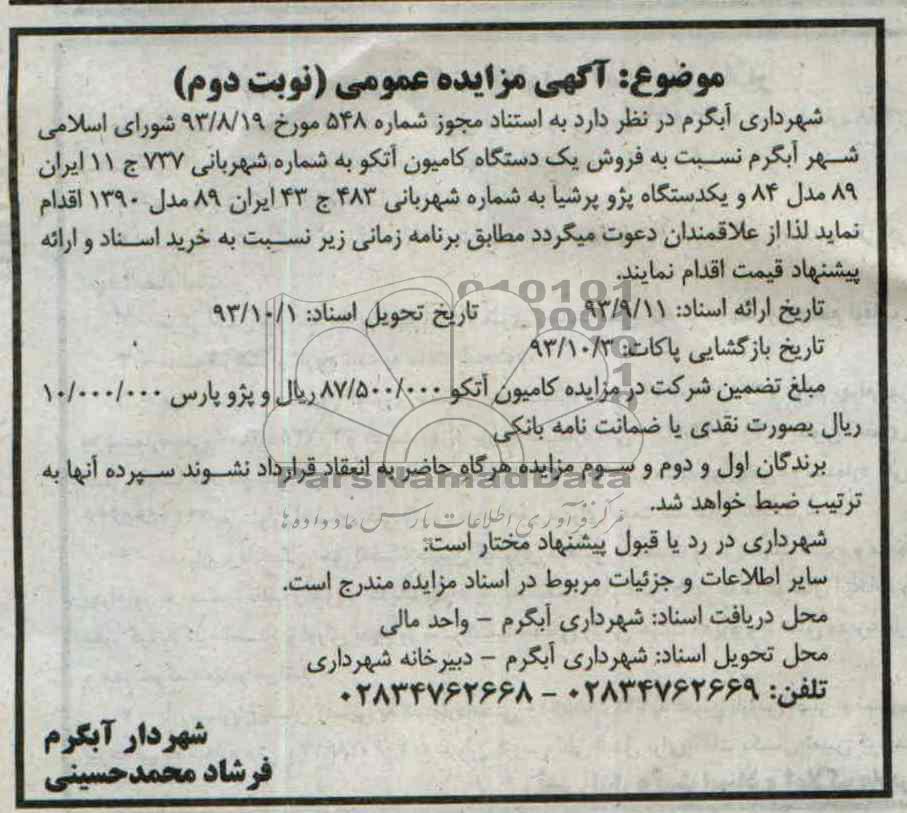 موضوع: آگهی مزایده عمومی (نوبت دوم)
شهرداری آبگرم در نظر دارد به استناد مجوز شماره ۵۴۸ مورخ ۹۳/۸/۱۹ شورای اسلامی
شهر آبگرم نسبت به فروش یک دستگاه کامیون آتکو به شماره شهربانی ۷۳۷ ج ۱۱ ایران
۸۹ مدل ۸۴ و یکدستگاه پژو پرشیا به شماره شهربانی ۴۸۳ ج ۴۳ ایران ۸۹ مدل ۱۳۹۰ اقدام
نماید لذا از علاقمندان دعوت میگردد مطابق برنامه زمانی زیر نسبت به خرید اسناد و ارائه
پیشنهاد قیمت اقدام نمایند.
تاریخ ارائه اسناد: ۹۳/۹/۱۱ تاریخ تحویل اسناد: ۹۳/۱۰/۱
تاریخ بازگشایی پاکات: ۹۳/۱۰/۳
مبلغ تضمین شرکت در مزایده کامیون آتکو ۸۷/۵۰۰/۰۰۰ ریال و پژو پارس ۱۰/۰۰۰/۰۰۰
ریال بصورت نقدی یا ضمانت نامه بانکی
برندگان اول و دوم و سوم مزایده هرگاه حاضر به انعقاد قرارداد نشوند سپرده آنها به
ParsNamadData
ترتیب ضبط خواهد شد.
مرکز فرآوری اطلاعات پارس نماد داده ها
شهرداری در رد یا قبول پیشنهاد مختار است.
سایر اطلاعات و جزئیات مربوط در اسناد مزایده مندرج است.
محل دریافت اسناد: شهرداری آبگرم – واحد مالی
محل تحویل اسناد: شهرداری آبگرم – دبیرخانه شهرداری
تلفن: ۰۲۸۳۴۷۶۲۶۶۹ – ۰۲۸۳۴۷۶۲۶۶۸
شهردار آبگرم
فرشاد محمدحسینی